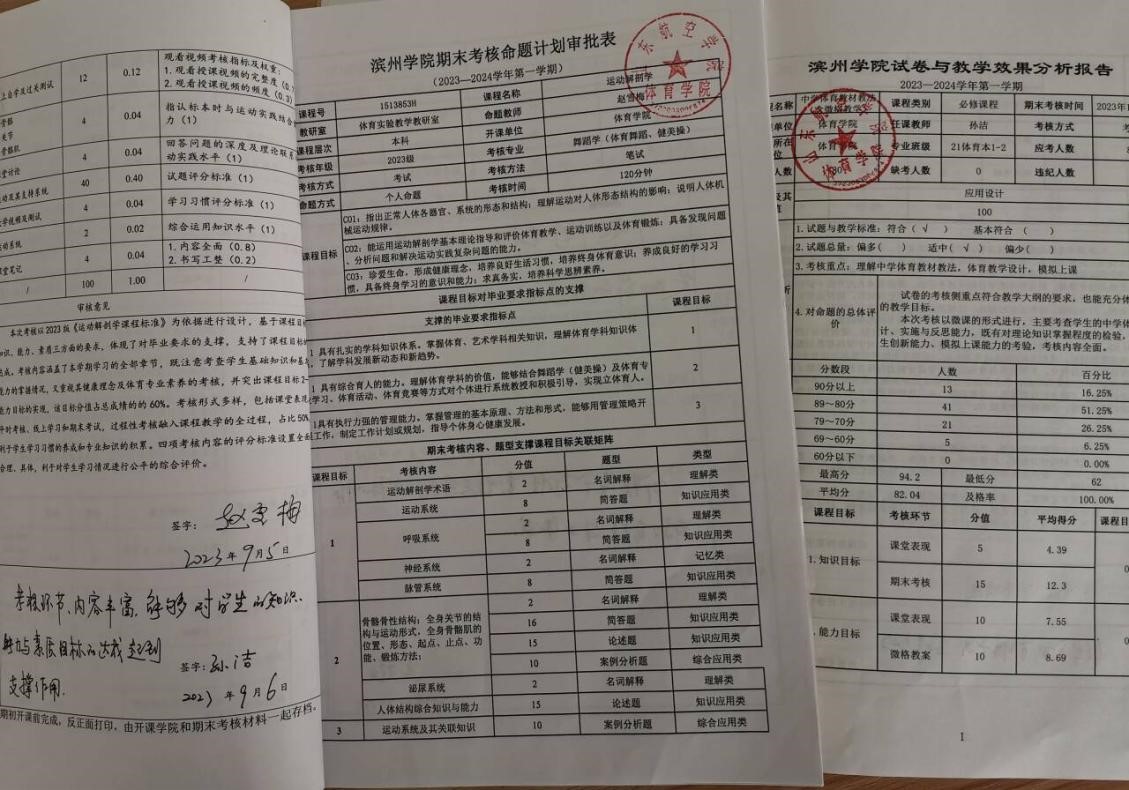 观看视频考核指标及权重:
上自学及过关测试 12 0.12 1.观看授课视频的完整度(0.
2.观看授课视频的频度(0.3)
4 0.04 指认标本时与运动实践结合
力(1)
4 0.04 回答问题的深度及理论联系
动实践水平(1)
动及其支持系统 40 0.40 试题评分标准(1)
学视频及测试 4 0.04 学习习惯评分标准(1)
动系统 2 0.02 综合运用知识水平(1)
堂笔记 4 0.04 1.内容全面(0.8)
2.书写工整(0.2)
/ 100 1.00 /
审核意见
本次考核以2023版《运动解剖学课程标准》为依据进行设计,基于课程目标
知识、能力、素质三方面的要求,体现了对毕业要求的支撑,支持了课程目标的
达成。考核内容涵盖了本学期学习的全部章节,既注意考查学生基础知识和基
能力的掌握情况,又重视其健康理念及体育专业素养的考核,并突出课程目标2
能力目标的实现,该目标分值占总成绩的的60%。考核形式多样,包括课堂表现
平时考核、线上学习和期末考试,过程性考核融入课程教学的全过程,占比50%
利于学生学习习惯的养成和专业知识的积累。四项考核内容的评分标准设置全面
合理、具体,利于对学生学习情况进行公平的综合评价。
签字: 赵雪梅
2023年9月5日
考核环节、内容丰富,能够对学生的知识、
能力与素质目标的达成起到
支撑作用.
签字: 孙洁
2023年9月6日
期初开课前完成,反正面打印,由开课学院和期末考核材料一起存档。
滨州学院期末考核命题计划审批表
(2023—2024学年第一学期)
课程号 1513853H 课程名称 运动解剖学
教研室 体育实验教学教研室 命题教师 赵雪梅
课程层次 本科 开课单位 体育学院
考核年级 2023级 考核专业 舞蹈学(体育舞蹈、健美操)
考核方式 考试 考核方法 笔试
命题方式 个人命题 考核时间 120分钟
课程目标
CO1:指出正常人体各器官、系统的形态和结构;理解运动对人体形态结构的影响;说明人体机
械运动规律。
CO2:能运用运动解剖学基本理论指导和评价体育教学、运动训练以及体育锻炼;具备发现问题
、分析问题和解决运动实践复杂问题的能力。
CO3:珍爱生命,形成健康理念,培养良好生活习惯,培养终身体育意识;养成良好的学习习
惯,具备终身学习的意识和能力;求真务实,培养科学思辨素养。
课程目标对毕业要求指标点的支撑
支撑的毕业要求指标点 课程目标
1 具有扎实的学科知识体系。掌握体育、艺术学科相关知识,理解体育学科知识体
,了解学科发展新动态和新趋势。 1
1 具有综合育人的能力。理解体育学科的价值,能够结合舞蹈学(健美操)及体育专
学习、体育活动、体育竞赛等方式对个体进行系统教授和积极引导,实现立体育人。 2
1具有执行力强的管理能力。掌握管理的基本原理、方法和形式,能够用管理策略开
工作,制定工作计划或规划,指导个体身心健康发展。 3
期末考核内容、题型支撑课程目标关联矩阵
课程目标 考核内容 分值 题型 类型
1 运动解剖学术语 2 名词解释 理解类
运动系统 8 简答题 知识应用类
呼吸系统 2 名词解释 理解类
8 简答题 知识应用类
神经系统 2 名词解释 记忆类
脉管系统 8 简答题 知识应用类
2 骨骼骨性结构;全身关节的结
构与运动形式,全身骨骼肌的
位置、形态、起点、止点、功
能、锻炼方法;
2 名词解释 理解类
16 简答题 知识应用类
15 论述题 知识应用类
10 案例分析题 综合应用类
泌尿系统 2 名词解释 理解类
人体结构综合知识与能力 15 论述题 知识应用类
3 运动系统及其关联知识 10 案例分析题 综合应用类
东航空学院
体育学院
滨州学院试卷与教学效果分析报告
2023—2024学年第一学期
程名称 中学体育教材教法 课程类别 必修课程 期末考核时间 2023年1
课单位 体育学院 任课教师 孙洁 考核方式
体育学院 专业班级 21体育本1-2 应考人数
人数 缺考人数 0 违纪人数
应用设计
100
1.试题与教学标准:符合( √ ) 基本符合( )
2.试题总量:偏多( ) 适中( √ ) 偏少( )
3.考核重点:理解中学体育教材教法,体育教学设计,模拟上课
4.对命题的总体评
价
试卷的考核侧重点符合教学大纲的要求,也能充分体
的教学目标。
本次考核以微课的形式进行,主要考查学生的中学体
计、实施与反思能力,既有对理论知识掌握程度的检验,
生创新能力、模拟上课能力的考验,考核内容全面。
分数段 人数 百分比
90分以上 13 16.25%
89~80分 41 51.25%
79~70分 21 26.25%
69~60分 5 6.25%
60分以下 0 0.00%
最高分 94.2 最低分 62
平均分 82.04 及格率 100.00%
课程目标 考核环节 分值 平均得分 课程目
1.知识目标 课堂表现 5 4.39
期末考核 15 12.3
.能力目标 课堂表现 10 7.55
微格教案 10 8.69
体育学院
1